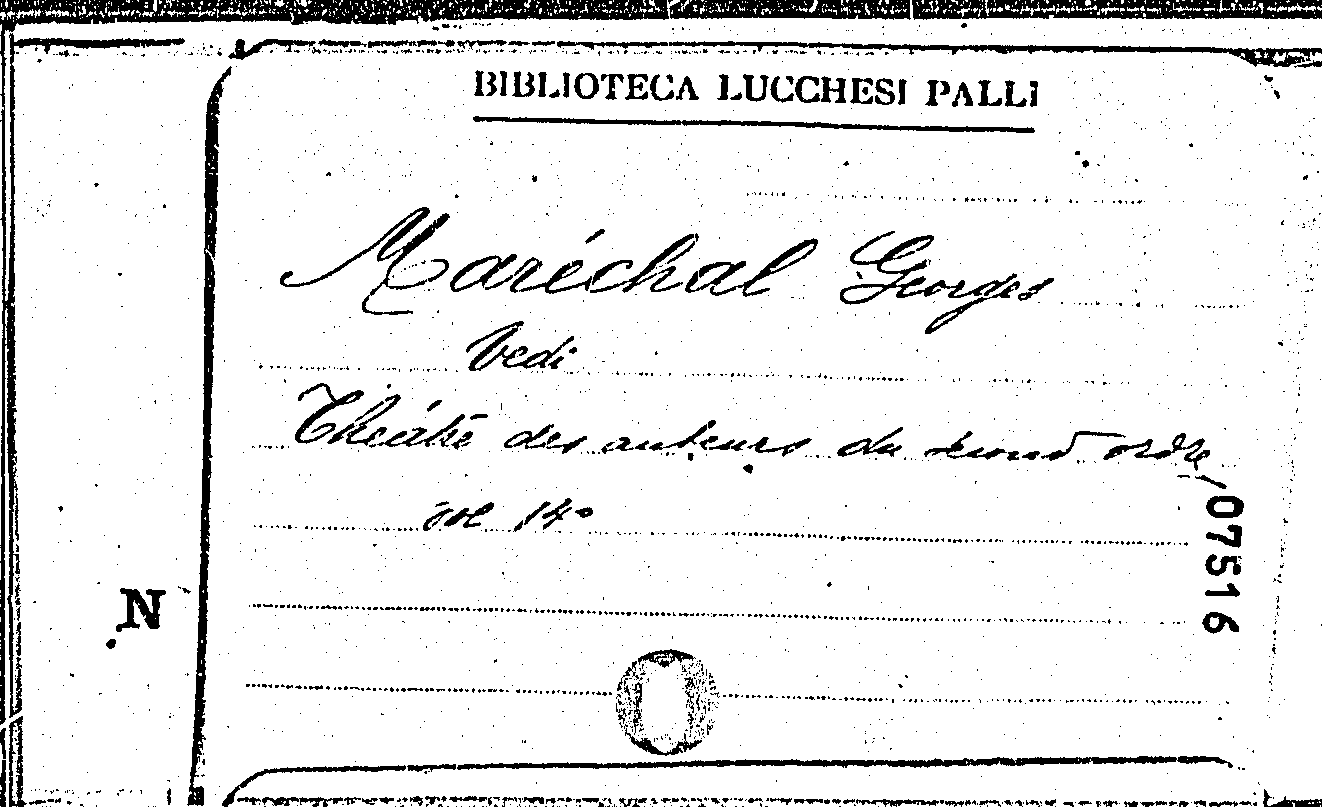 BIBLIOTECA LUCCHESI PALLI
Maréchal Georges
Vedi
Théâtre des auteurs du second ordre
vol 14º
07516
N